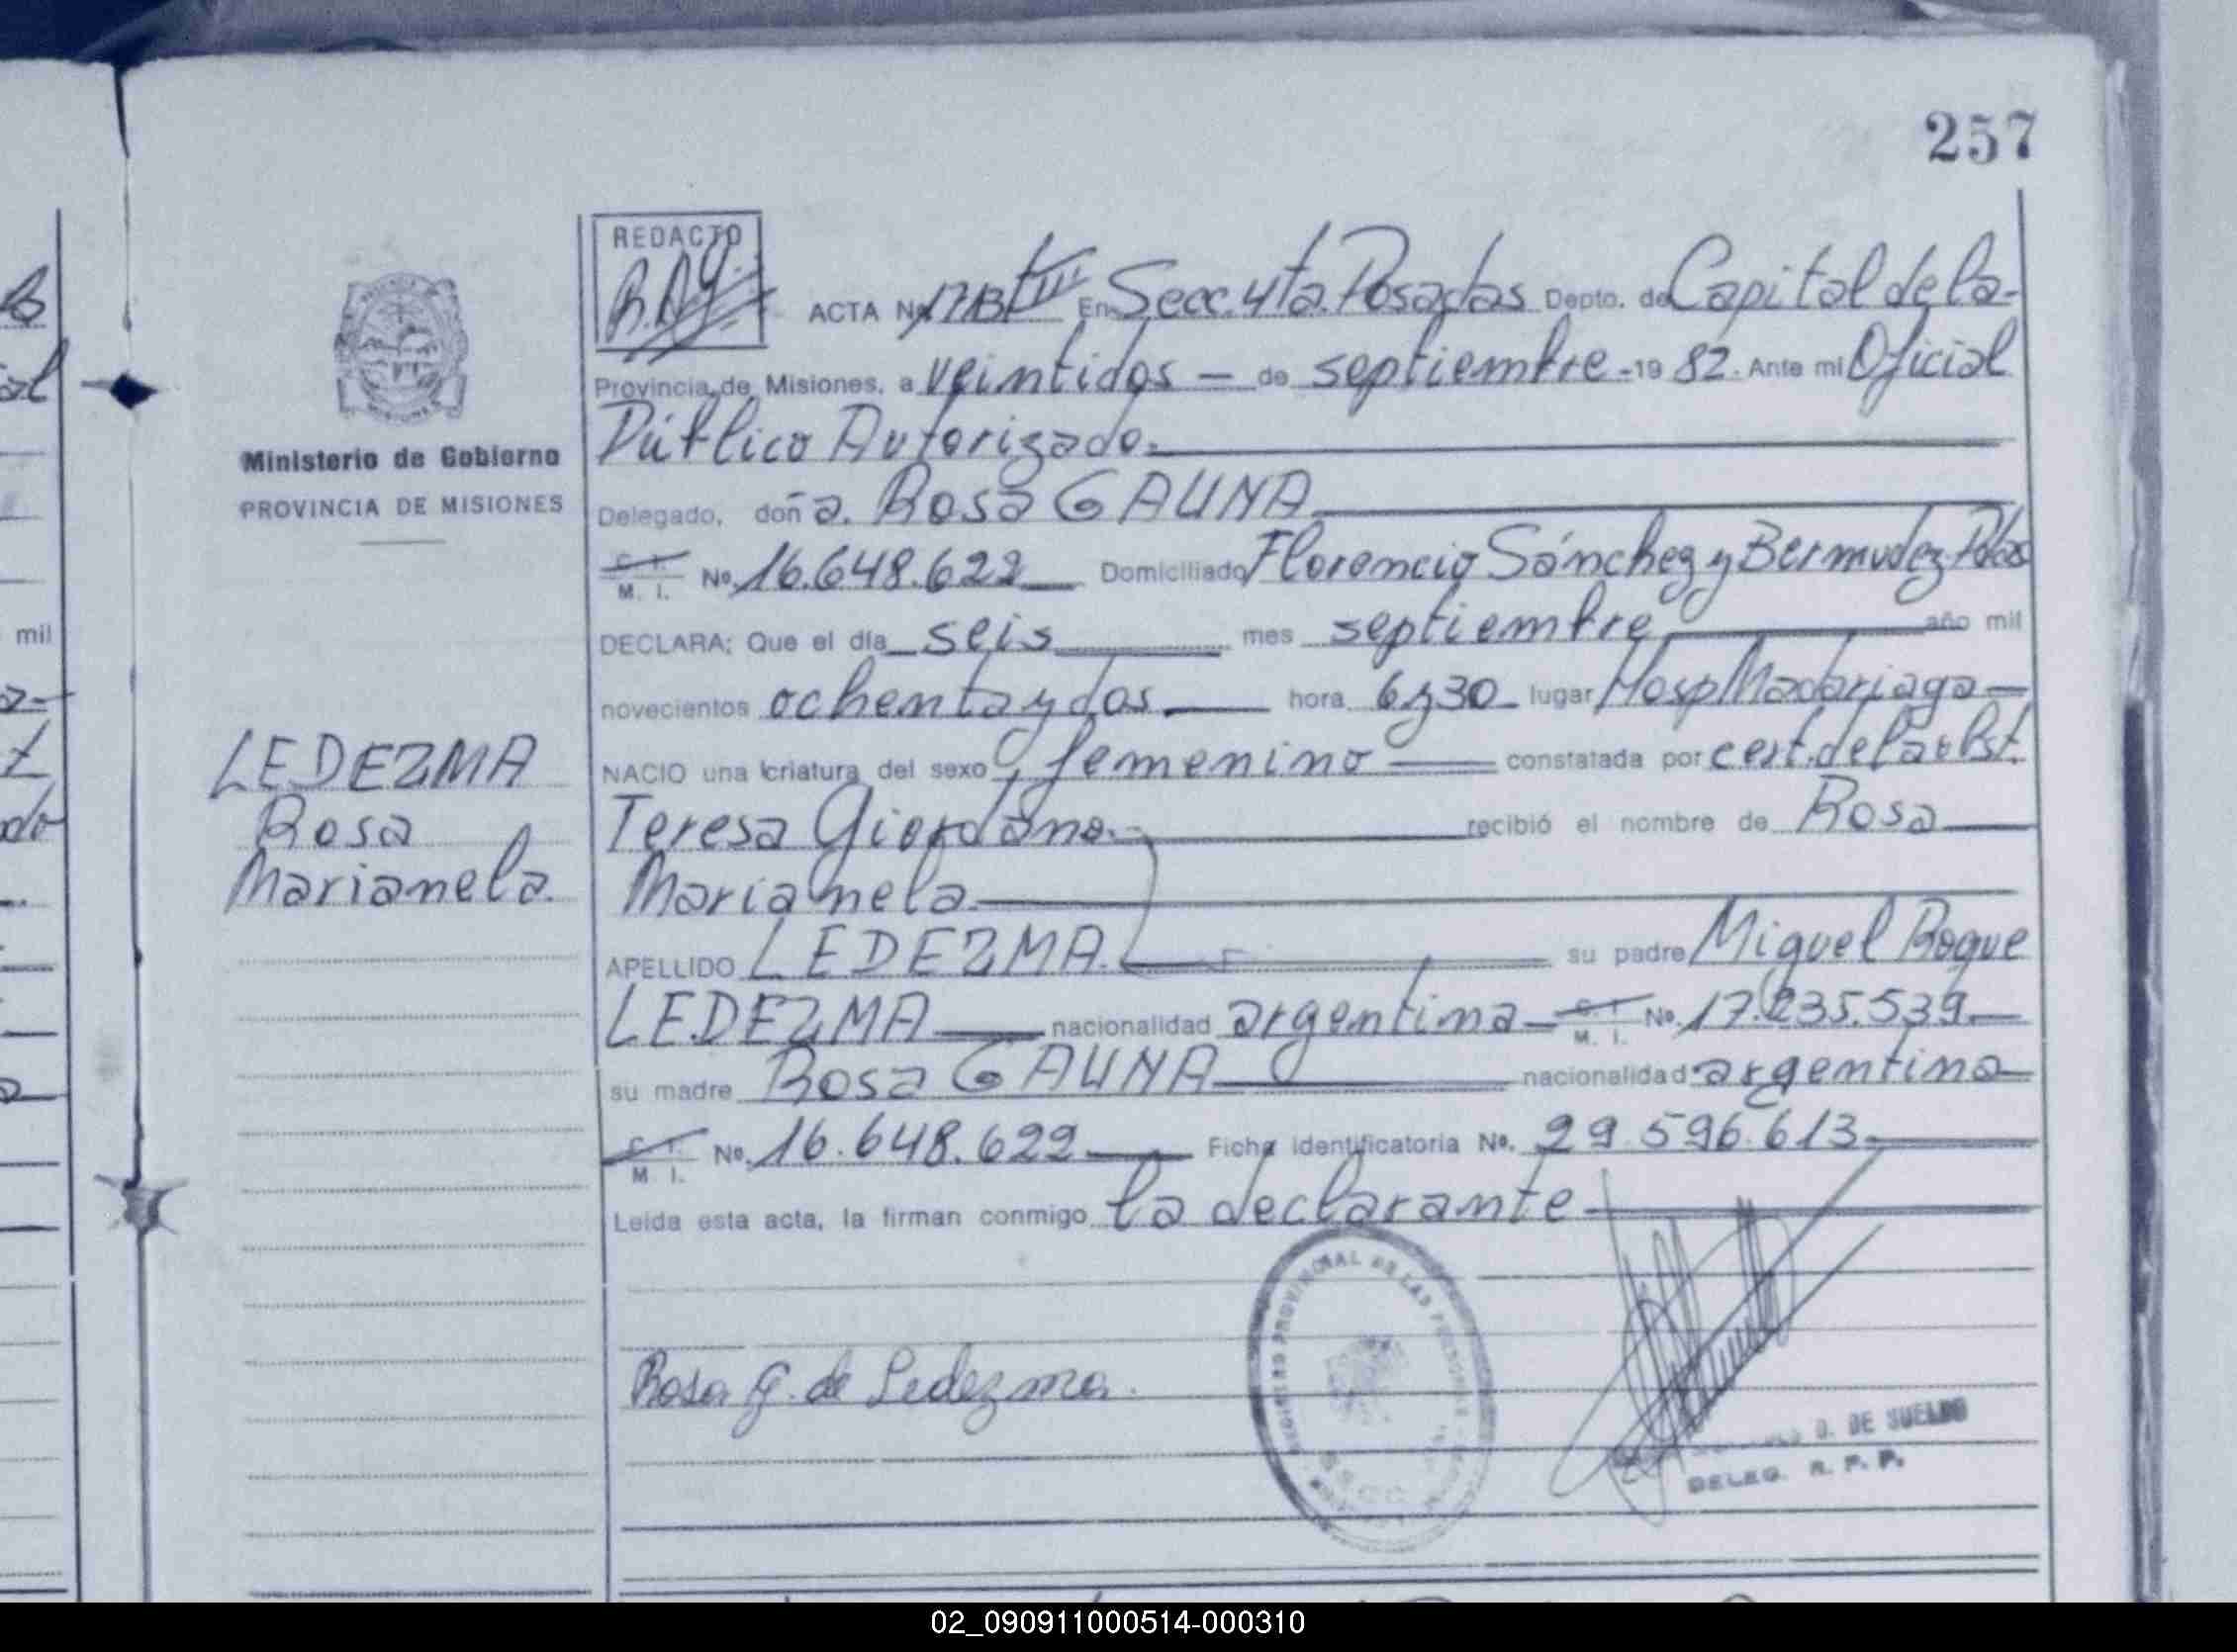 257
REDACTO
ACTA No En Secc. 4ta. Posadas Depto. de Capital de la-
Provincia de Misiones, a veintidos - de septiembre - 19 82. Ante mi Oficial
Público Autorizado.
Ministerio de Gobierno
PROVINCIA DE MISIONES
Delegado, doña. Rosa GAUNA
C. I.
M. I. No. 16.648.622 Domiciliado Florencio Sánchez y Bermudez Pdas
DECLARA; Que el día seis mes septiembre año mil
novecientos ochenta y dos. hora 6 y 30 lugar Hosp Madariaga
NACIO una criatura del sexo femenino constatada por cert. de la obst.
Teresa Giordano. recibió el nombre de Rosa
Marianela.
APELLIDO LEDEZMA. su padre Miguel Roque
LEDEZMA nacionalidad argentina C. I.
M. I. No. 17.235.539.
su madre Rosa GAUNA nacionalidad argentina
C. I.
M. I. No. 16.648.622 Ficha identificatoria No. 29.596.613.
Leida esta acta, la firman conmigo la declarante
LEDEZMA
Rosa
Marianela.
Rosa G. de Ledezma.
REGISTRO PROVINCIAL DE LAS PERSONAS
D. DE SUELDO
DELEG. R. P. P.
mil
02_090911000514-000310